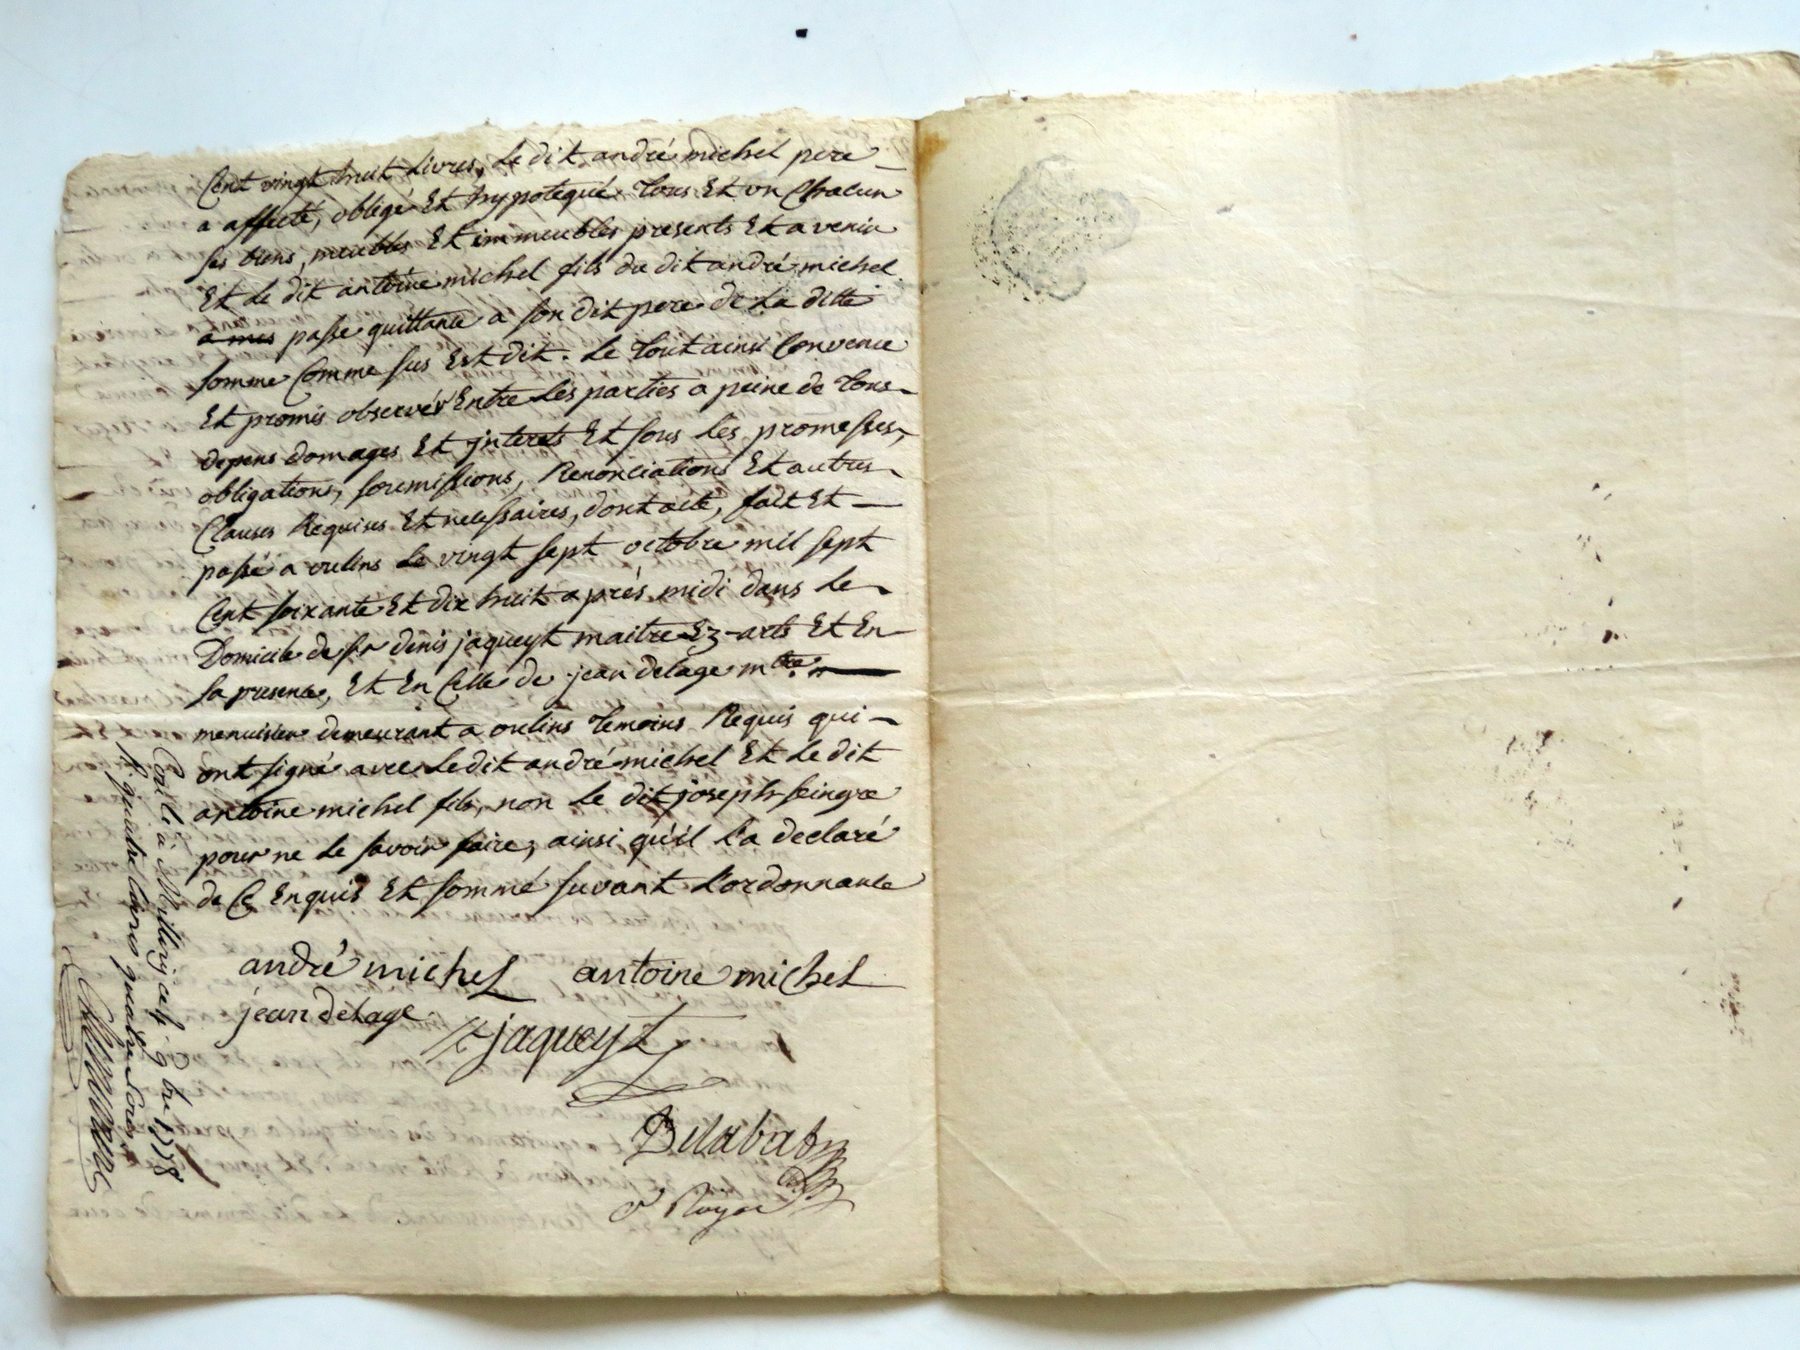 Cent vingt huit livres, Le dit andré michel pere
a affecté, obligé Et hypotequé Tous Et un Chacun
ses biens, meubles Et immeubles presents Et a venir
Et Le dit antoine michel fils du dit andré michel
a mes passe quittance a son dit pere de La ditte
somme Comme sus Est dit. Le Tout ainsi Convenu
Et promis observér Entre Les parties a peine de Tous
depens domages Et jnterets Et sous Les promesses,
obligations, soumissions, Renonciations Et autres
Clauses Requises Et necessaires, dont acte, fait Et
passé a oulins Le vingt sept octobre mil sept
Cent soixante Et dix huit après midi dans Le
Domicile de sr denis jaqueyt maitre Ez-arts Et En
sa presence, Et En Celle de jean delage mtre
menuisier demeurant a oulins Temoins Requis qui
ont signé avec Le dit andré michel Et Le dit
antoine michel fils, non Le dit joseph seingre
pour ne Le savoir faire, ainsi qu'il L'a declaré
de Ce Enquis Et sommé suvant L'ordonnance
andré michel antoine michel
jean delage
jaqueyt
Delabat
Royer
à Millery ce 9bre 1778
quatre livres quatre sous